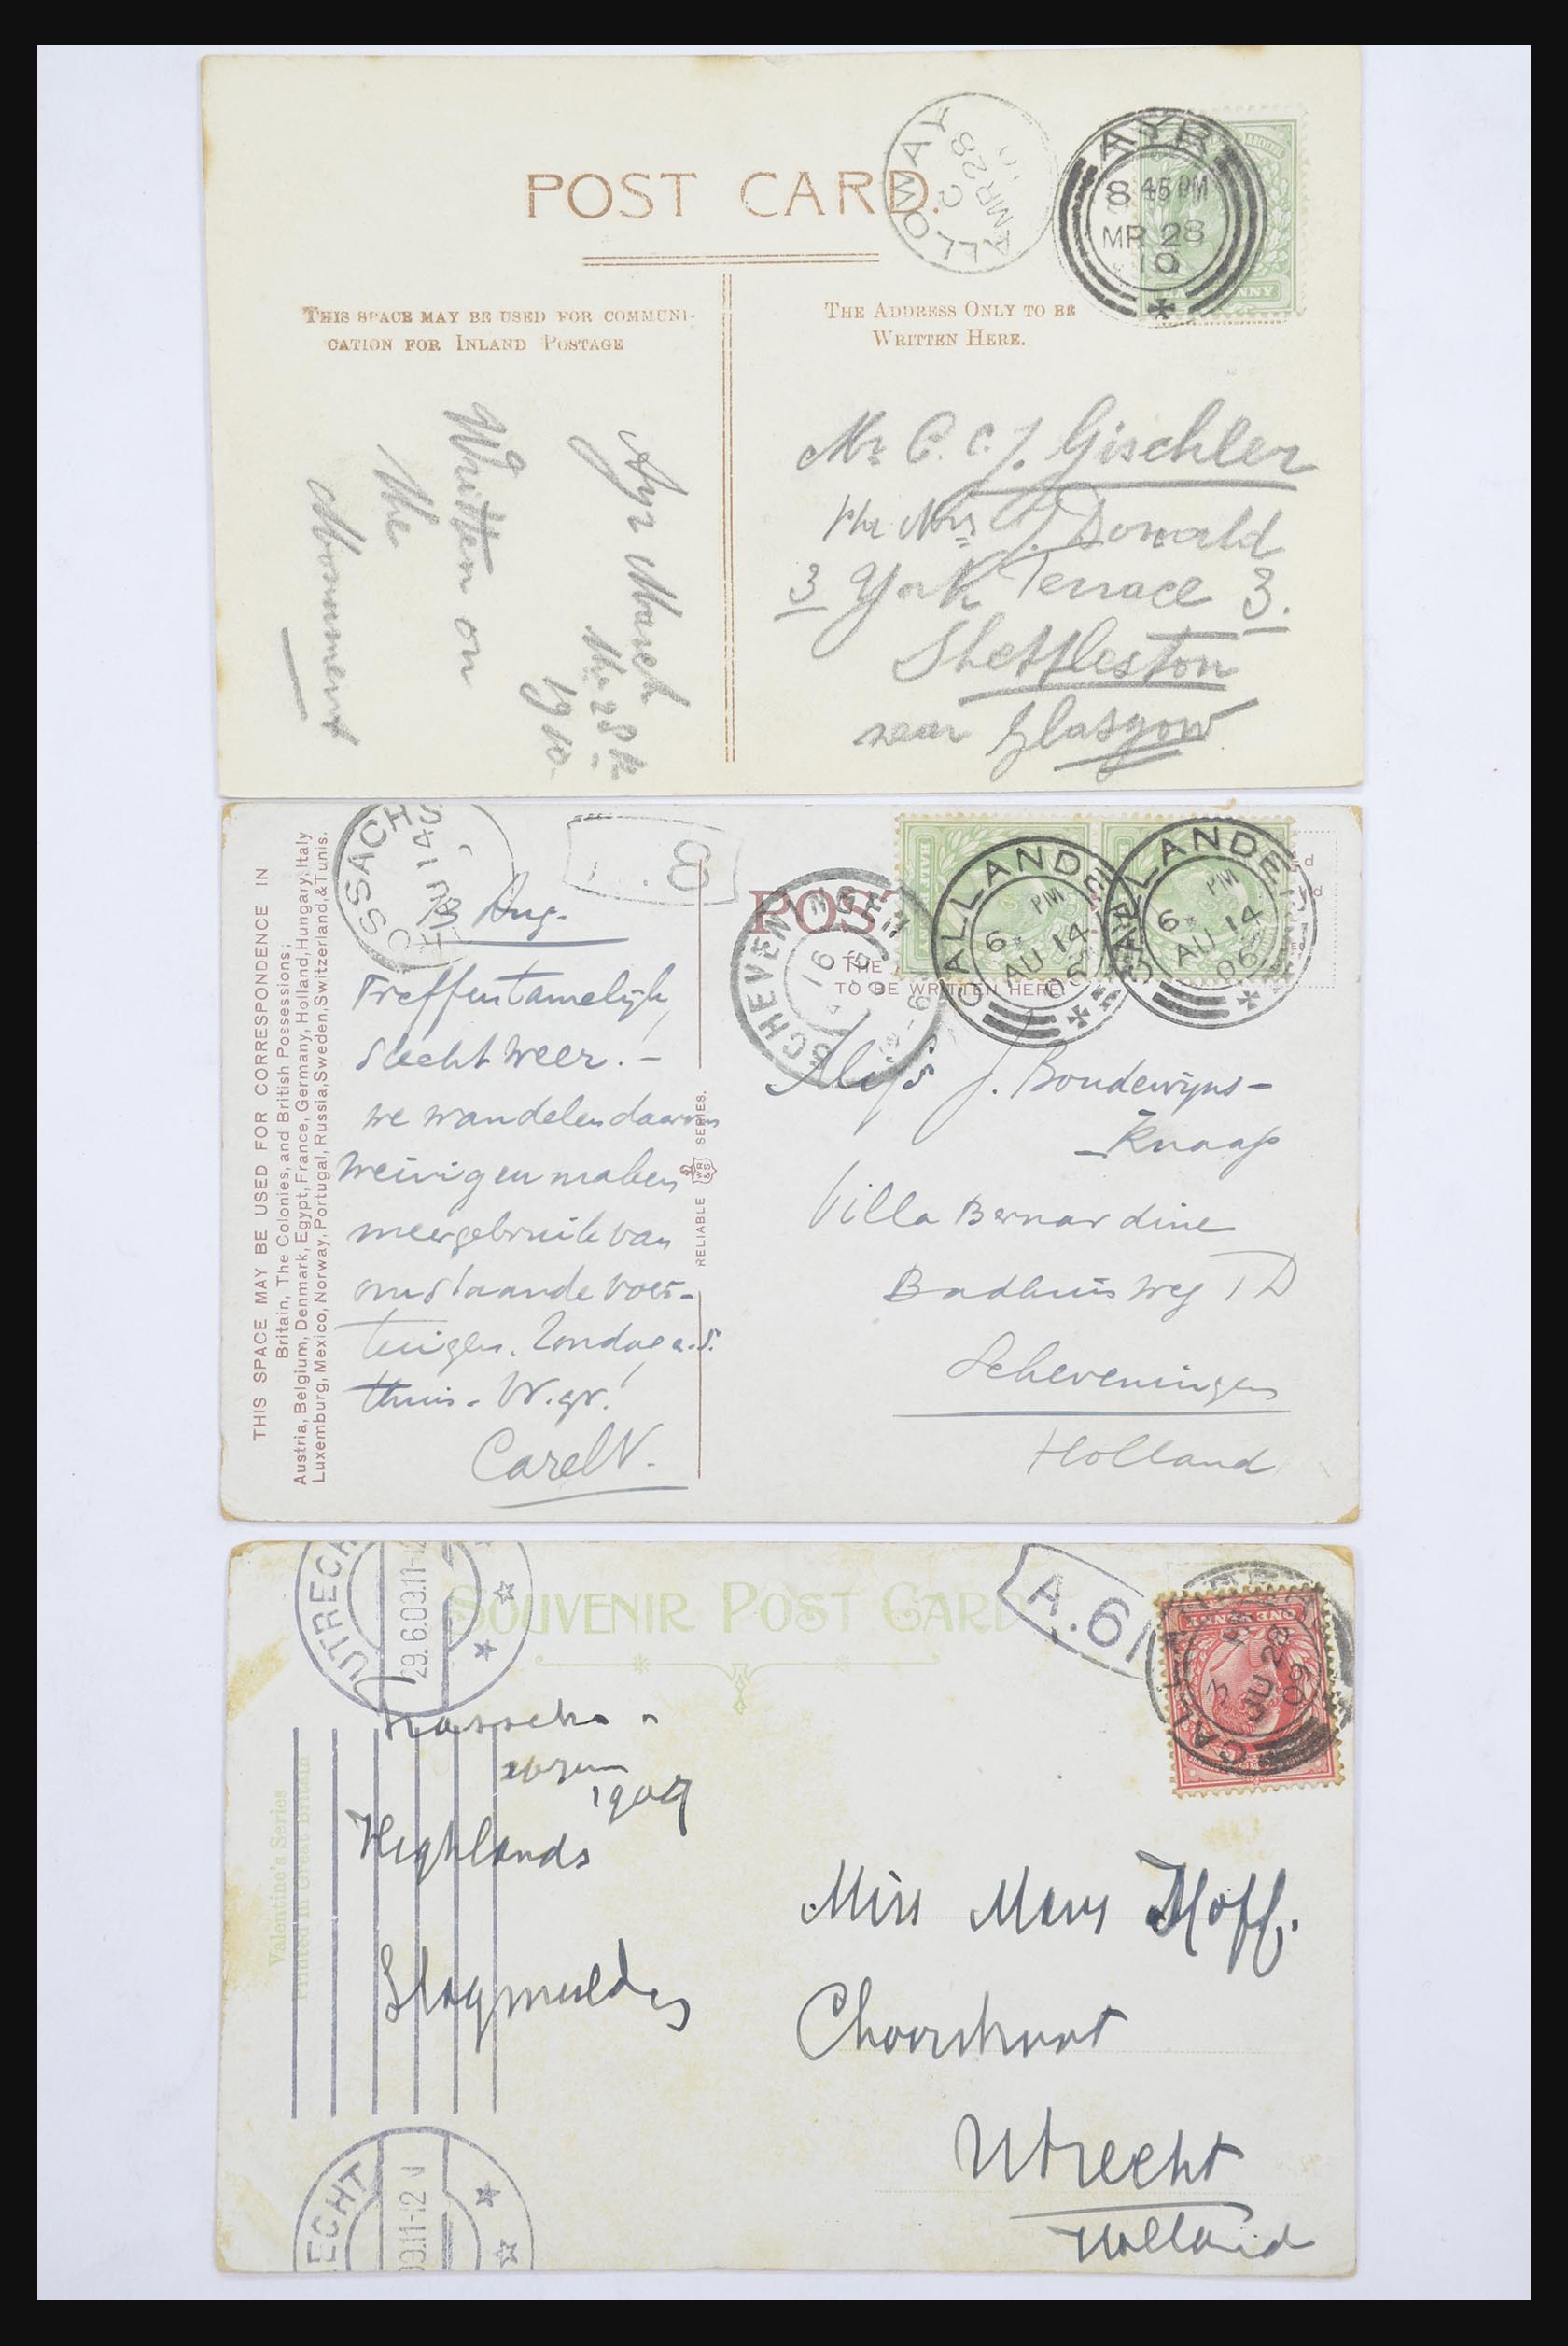 POST CARD.
ALLOWAY
C
MR 28
10
AYR
8 45 PM
MR 28
10
THIS SPACE MAY BE USED FOR COMMUNI-
CATION FOR INLAND POSTAGE
THE ADDRESS ONLY TO BE
WRITTEN HERE.
Ayr March
the 28th
1910.
Written on
the
Monument
Mr C. C. J. Gischler
J. Donald
3 York Terrace 3.
Shettleston
near Glasgow
THIS SPACE MAY BE USED FOR CORRESPONDENCE IN
Britain, The Colonies, and British Possessions;
Austria, Belgium, Denmark, Egypt, France, Germany, Holland, Hungary, Italy
Luxemburg, Mexico, Norway, Portugal, Russia, Sweden, Switzerland, & Tunis.
OSSACHS
AU 14
POST
THE
TO BE WRITTEN HERE
SCHEVENINGEN
CALLANDER
6 PM
AU 14
06
CALLANDER
6 PM
AU 14
06
RELIABLE SERIES.
13 Aug.
Treffen tamelijk
slecht weer! –
we wandelen daarom
weinig en maken
meer gebruik van
omstaande voer-
tuigen. Zondag a.s.
thuis. Vr. gr!
Carel V.
J. Boudewijns-
Knaap
Villa Bernardine
Badhuisweg 1 D
Scheveningen
Holland
SOUVENIR POST CARD
UTRECHT
29.6.09.11-12
A.61
ONE PENNY
CALLA
JU 28
09
Valentine's Series
Printed in Great Britain
1909
Highlands
Miss Hoff.
Choorstraat
Utrecht
Holland
ECHT
09.11-12 N